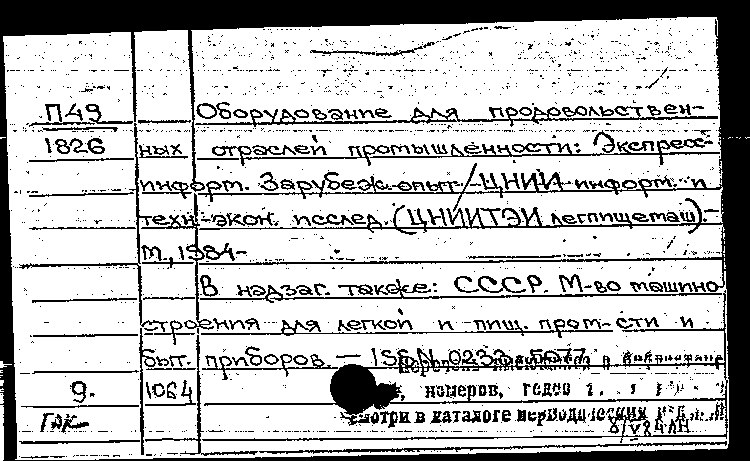 П49
1826
Оборудование для продовольствен-
ных отраслей промышленности: Экспресс-
информ. Зарубеж. опыт /ЦНИИ информ. и
техн.-экон. исслед. (ЦНИИТЭИ легпищемаш)-
М., 1984-
В надзаг. также: СССР. М-во машино
строения для легкой и пищ. пром-сти и
быт. приборов. — ISSN 0233-
номеров, годов
9. 1064
смотри в каталоге периодических
8/V 84